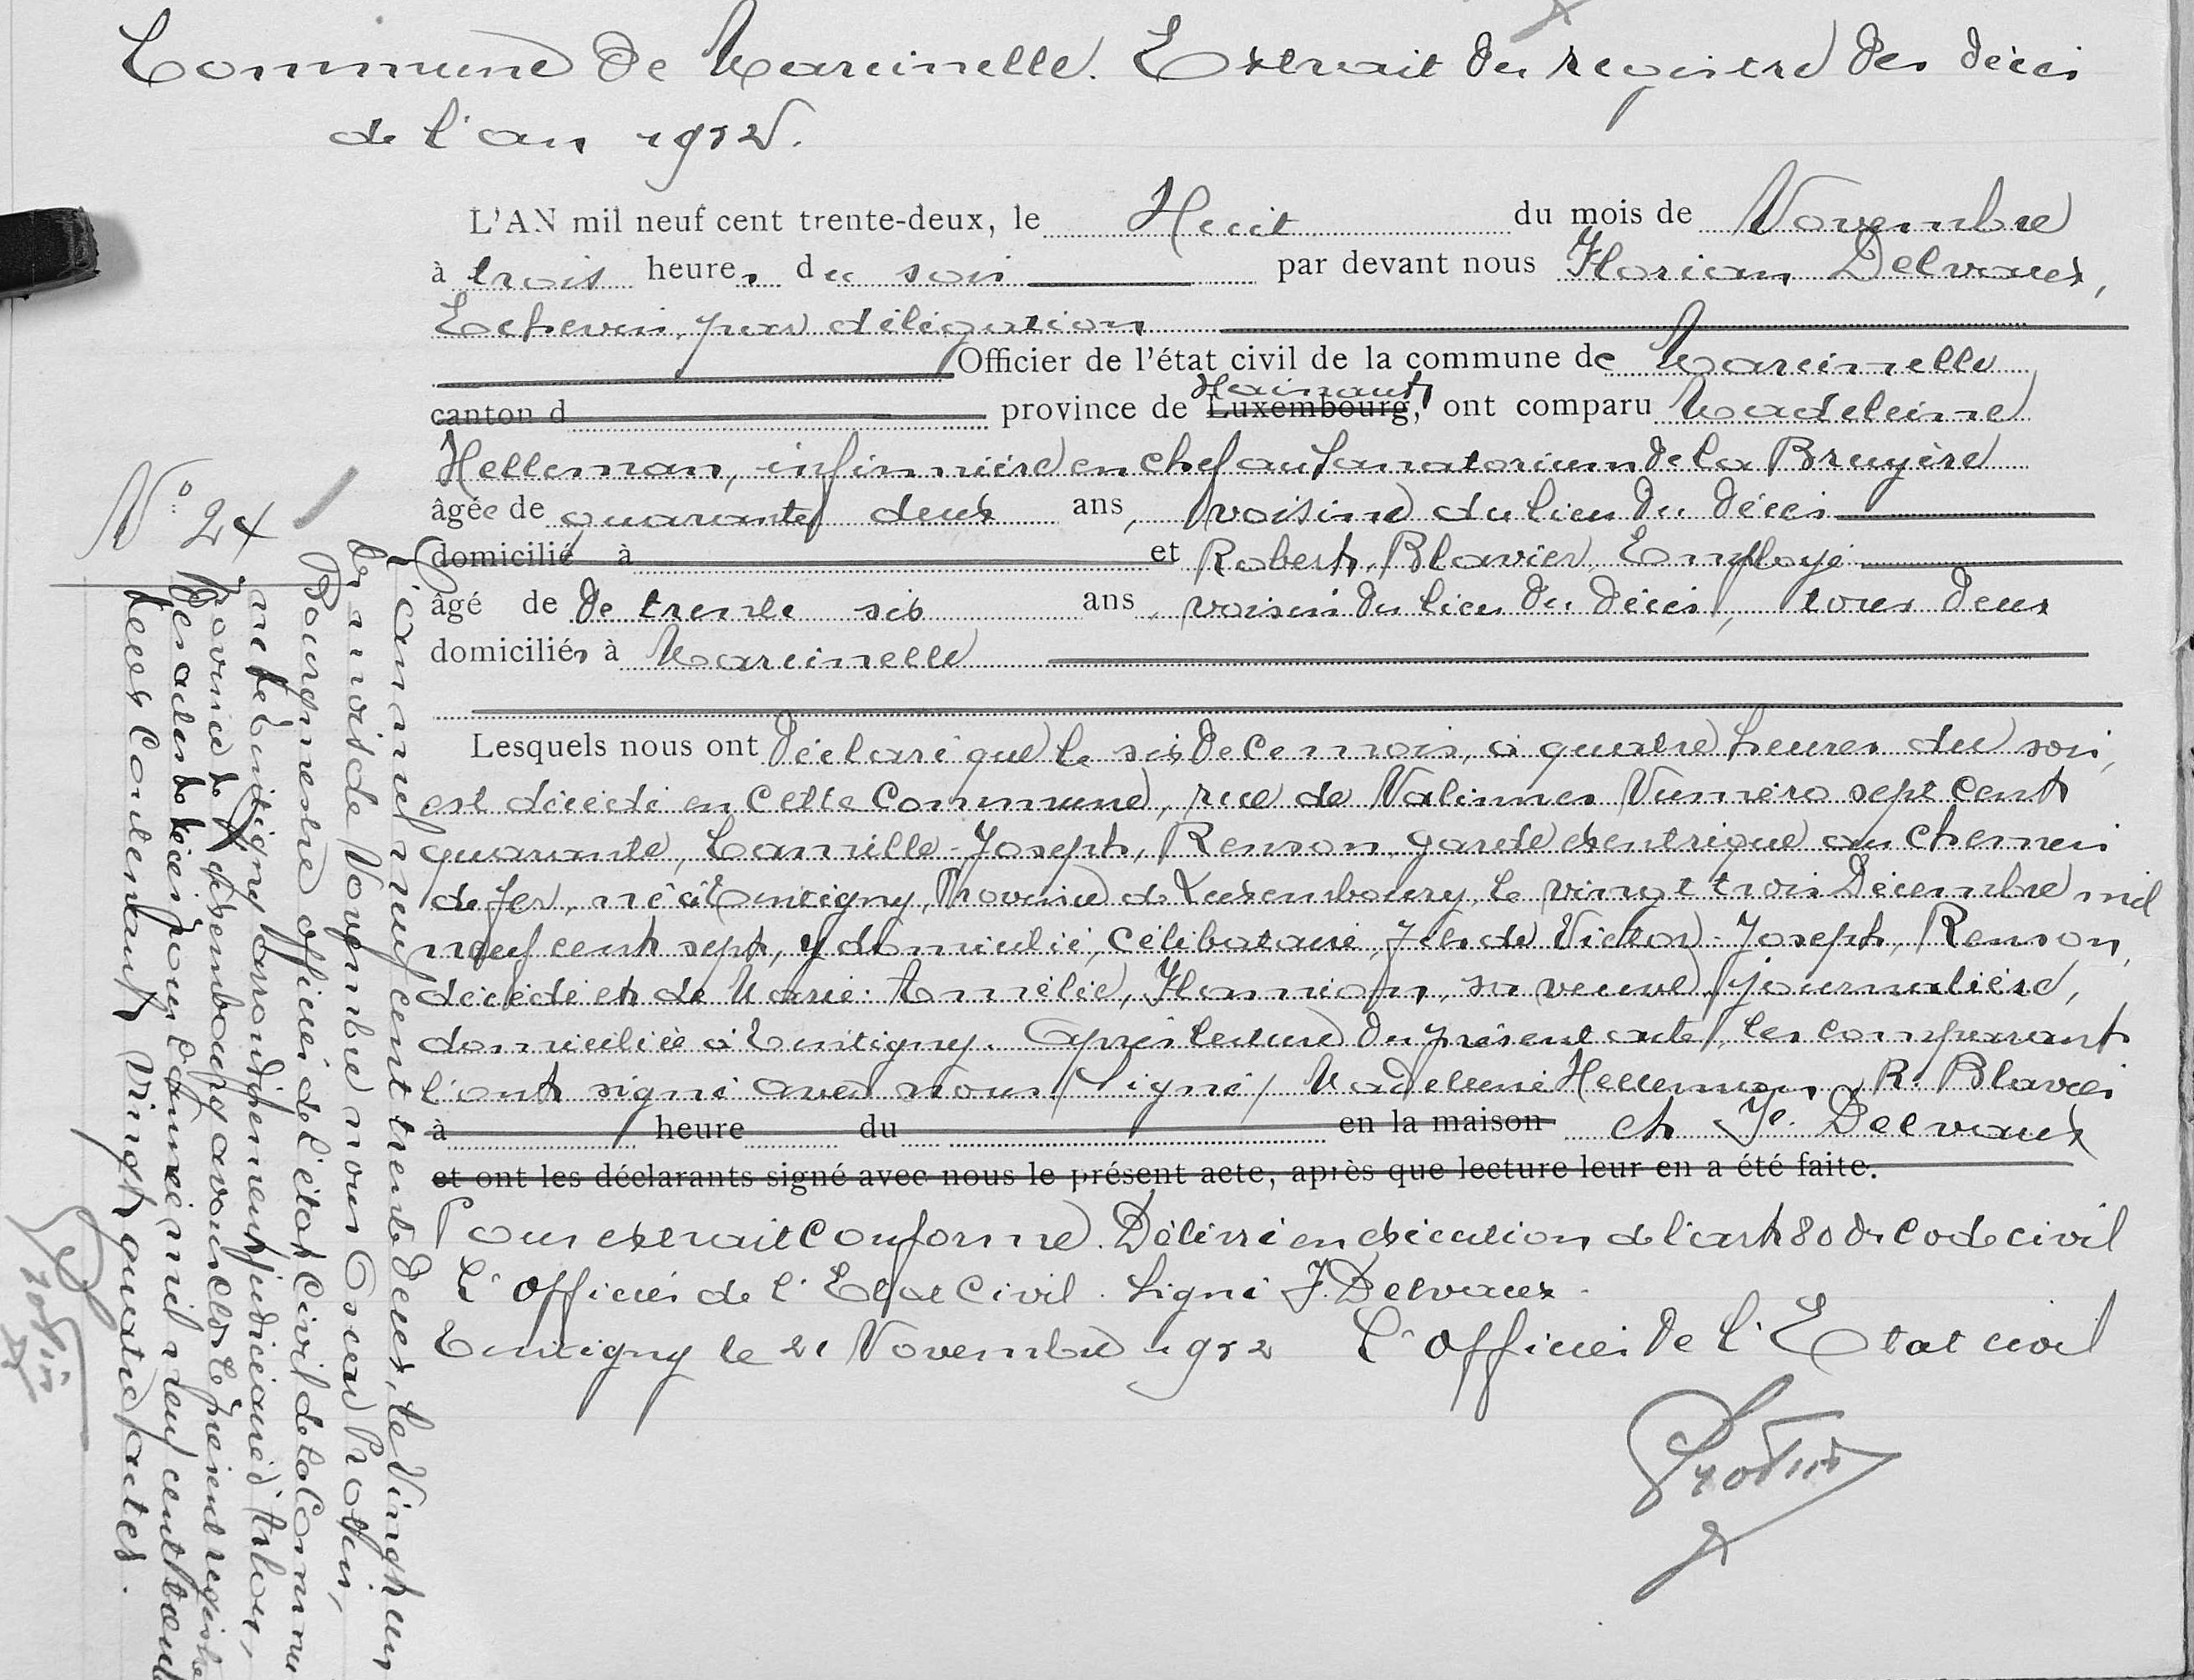 Commune de Marcinelle. Extrait du registre des décès
de l'an 1932.
L'AN mil neuf cent trente-deux, le Huit du mois de Novembre
à trois heures du soir par devant nous Florian Delvaux,
Echevin, par délégation
Officier de l'état civil de la commune de Marcinelle
canton d province de Luxembourg, Hainaut ont comparu Madeleine
Helleman, infirmière en chef au Sanatorium de la Bruyère
âgée de quarante deux ans, voisine du lieu du décès
domicilié à et Robert, Blavier, Employé
âgé de de trente six ans, voisin du lieu du décès, tous deux
domiciliés à Marcinelle
Lesquels nous ont déclaré que le six de ce mois, à quatre heures du soir,
est décédé en cette Commune, rue de Nalinnes Numéro sept cent
quarante, Camille-Joseph, Renson, garde excentrique au chemin
de fer, né à Tintigny, Province de Luxembourg, le vingt trois Décembre mil
neuf cent sept, y domicilié, célibataire, fils de Victor-Joseph, Renson,
décédé et de Marie-Amélie, Hannion, sa veuve, journalière,
domiciliée à Tintigny. Après lecture du présent acte, les comparants
l'ont signé avec nous / Signé / Madeleine Helleman, R. Blavier
à heure du en la maison et Fl. Delvaux
et ont les déclarants signé avec nous le présent acte, après que lecture leur en a été faite.
Pour extrait conforme. Délivré en exécution de l'art 80 du Code civil
L'Officier de l'Etat Civil. Signé F. Delvaux.
Tintigny le 21 Novembre 1932 L'Officier de l'Etat civil
N° 24
L'an mil neuf cent trente deux, le vingt un
du mois de Novembre nous Oscar
Bourgmestre officier de l'état civil de la Commune
de Tintigny arrondissement judiciaire d'Arlon,
Province de Luxembourg avons clos le présent registre
des actes de décès pour l'année mil neuf cent trente
deux contenant vingt quatre actes.